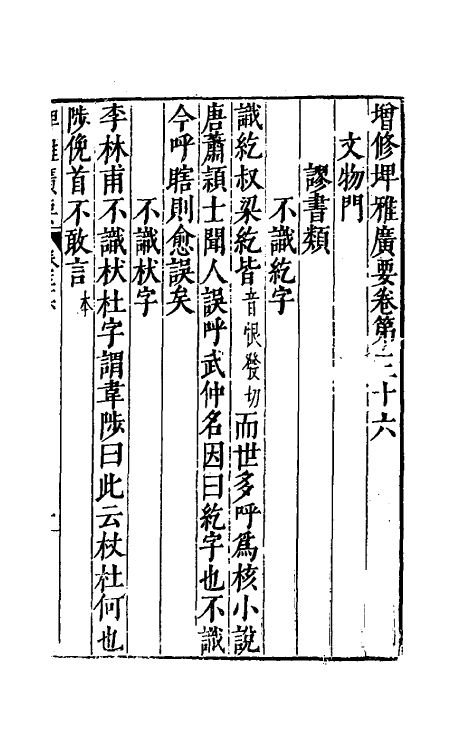 增修埤雅廣要卷第三十六
文物門
謬書類
不識紇字
識紇叔梁紇皆音恨發切而世多呼爲核小說
唐蕭頴士聞人誤呼武仲名因曰紇字也不識
今呼瞎則愈誤矣
不識杕字
李林甫不識杕杜字謂韋陟曰此云杖杜何也
陟俛首不敢言本